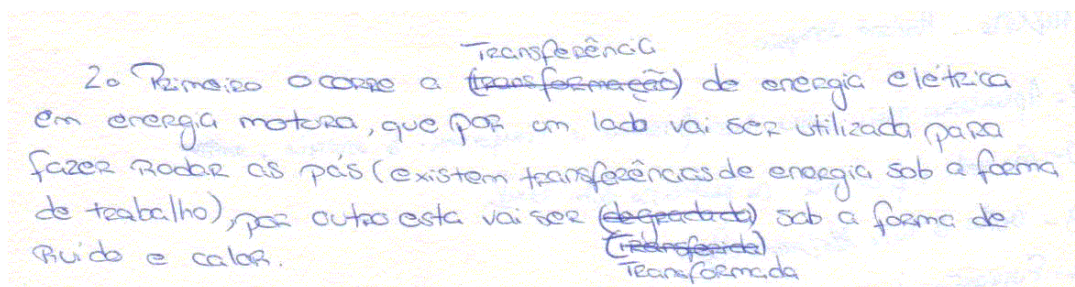 Transferência
2o Primeiro ocorre a (transformação) de energia elétrica
em energia motora, que por um lado vai ser utilizada para
fazer rodar as pás (existem transferências de energia sob a forma
de trabalho), por outro esta vai ser (degradada) sob a forma de
(Transferida)
ruído e calor.
Transformada